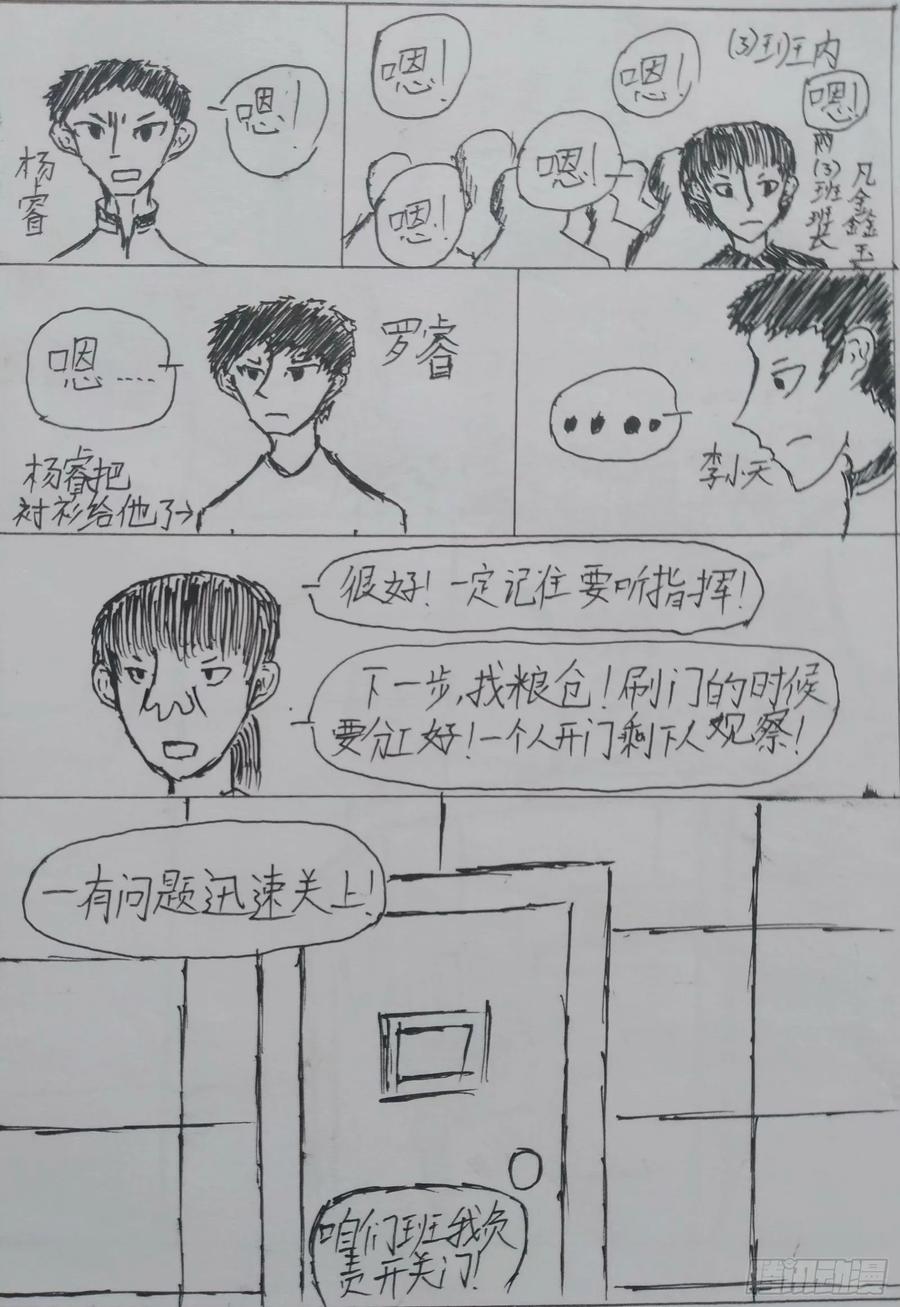 嗯!
杨睿
嗯!
嗯!
嗯!
嗯!
(3)班内
嗯!
(3)班班长
嗯……
罗睿
杨睿把
衬衫给他了→
••••
李小天
很好!一定记住要听指挥!
下一步,找粮仓!刷门的时候
要分工好!一个人开门剩下人观察!
一有问题迅速关上!
咱们班我负
责开关门!
腾讯动漫